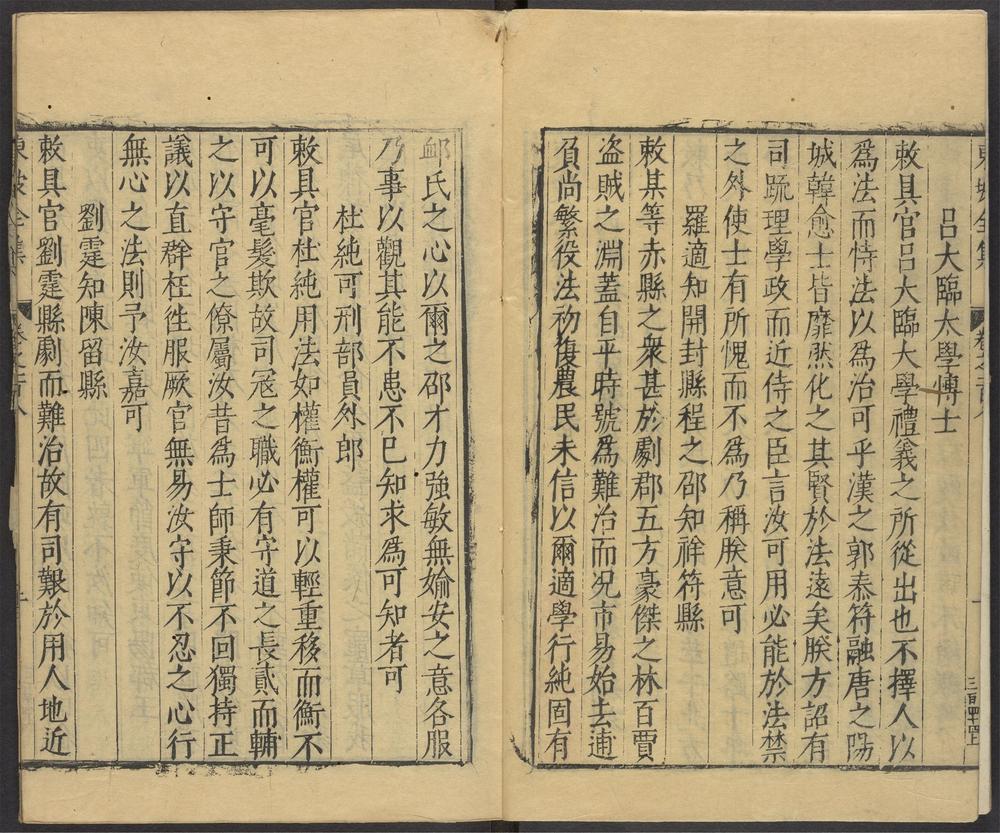 呂大臨太學博士
敕具官呂大臨大學禮義之所從出也不擇人以
爲法而恃法以爲治可乎漢之郭泰符融唐之陽
城韓愈士皆靡然化之其賢於法遠矣朕方詔有
司䟽理學政而近侍之臣言汝可用必能於法禁
之外使士有所愧而不爲乃稱朕意可
羅適知開封縣程之邵知祥符縣
敕某等赤縣之衆甚於劇郡五方豪傑之林百賈
盗賊之淵蓋自平時號爲難治而况市易始去逋
負尚繁役法初復農民未信以爾適學行純固有
邮氏之心以爾之邵才力強敏無媮安之意各服
乃事以觀其能不患不巳知求爲可知者可
杜純可刑部員外郎
敕具官杜純用法如權衡權可以輕重移而衡不
可以毫髮欺故司冦之職必有守道之長貳而輔
之以守官之僚屬汝昔爲士師秉節不回獨持正
議以直群枉徃服厥官無易汝守以不忍之心行
無心之法則予汝嘉可
劉霆知陳留縣
敕具官劉霆縣劇而難治故有司艱於用人地近